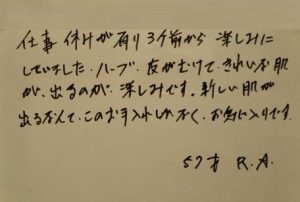 仕事 休みが有り 3ケ前から 楽しみに
していました。ハーブ、皮がむけて、きれいなお肌
が、出るのが 楽しみです。新しい肌が
出るなんて、このお手入れしかなく、お気に入りです。
57才 R.A.